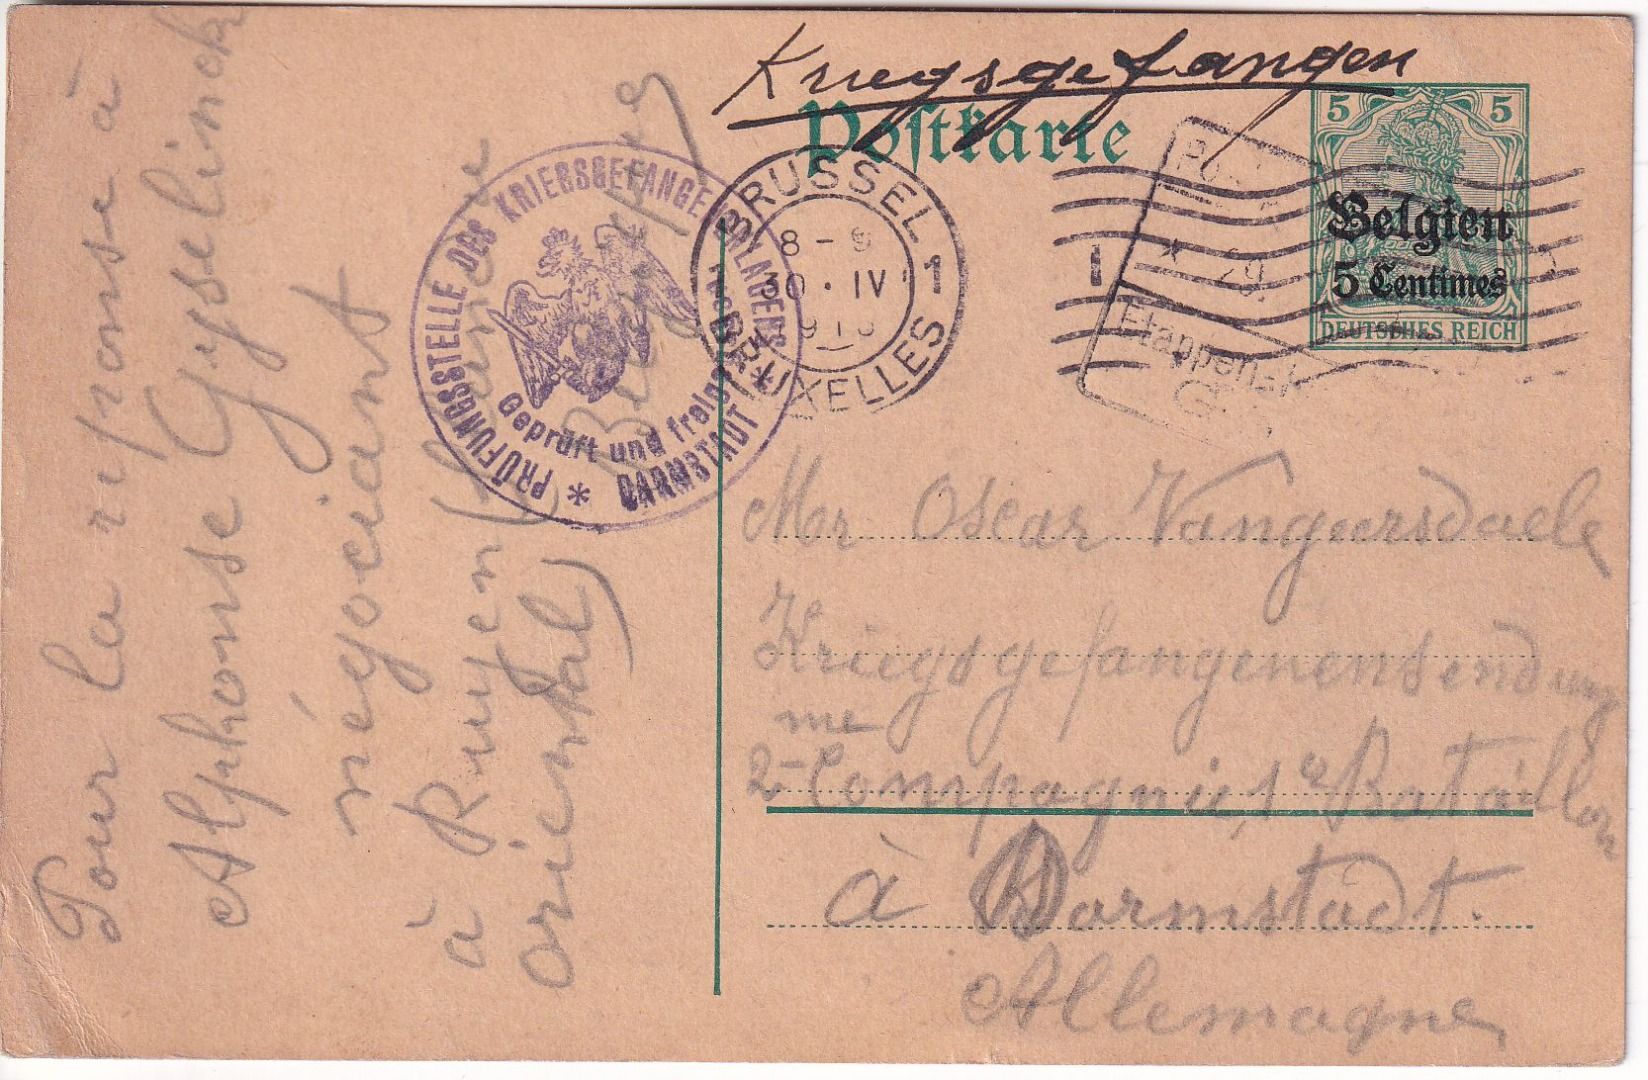 Kriegsgefangen
Postkarte
5 5
Belgien
5 Centimes
DEUTSCHES REICH
BRUSSEL 1
8-9
30·IV
BRUXELLES
1
* 29.
Etappen-
PRÜFUNGSSTELLE DES KRIEGSGEFANGENENLAGERS
Geprüft und freigegeben
* DARMSTADT *
Pour la réponse à
Alphonse Gyselinck
négociant
à Ruyen (Flandre
orientale)
Belgique
Mr Oscar Vangeersdaele
Kriegsgefangenensendung
2me Compagnie, 1er Bataillon
à Darmstadt.
Allemagne